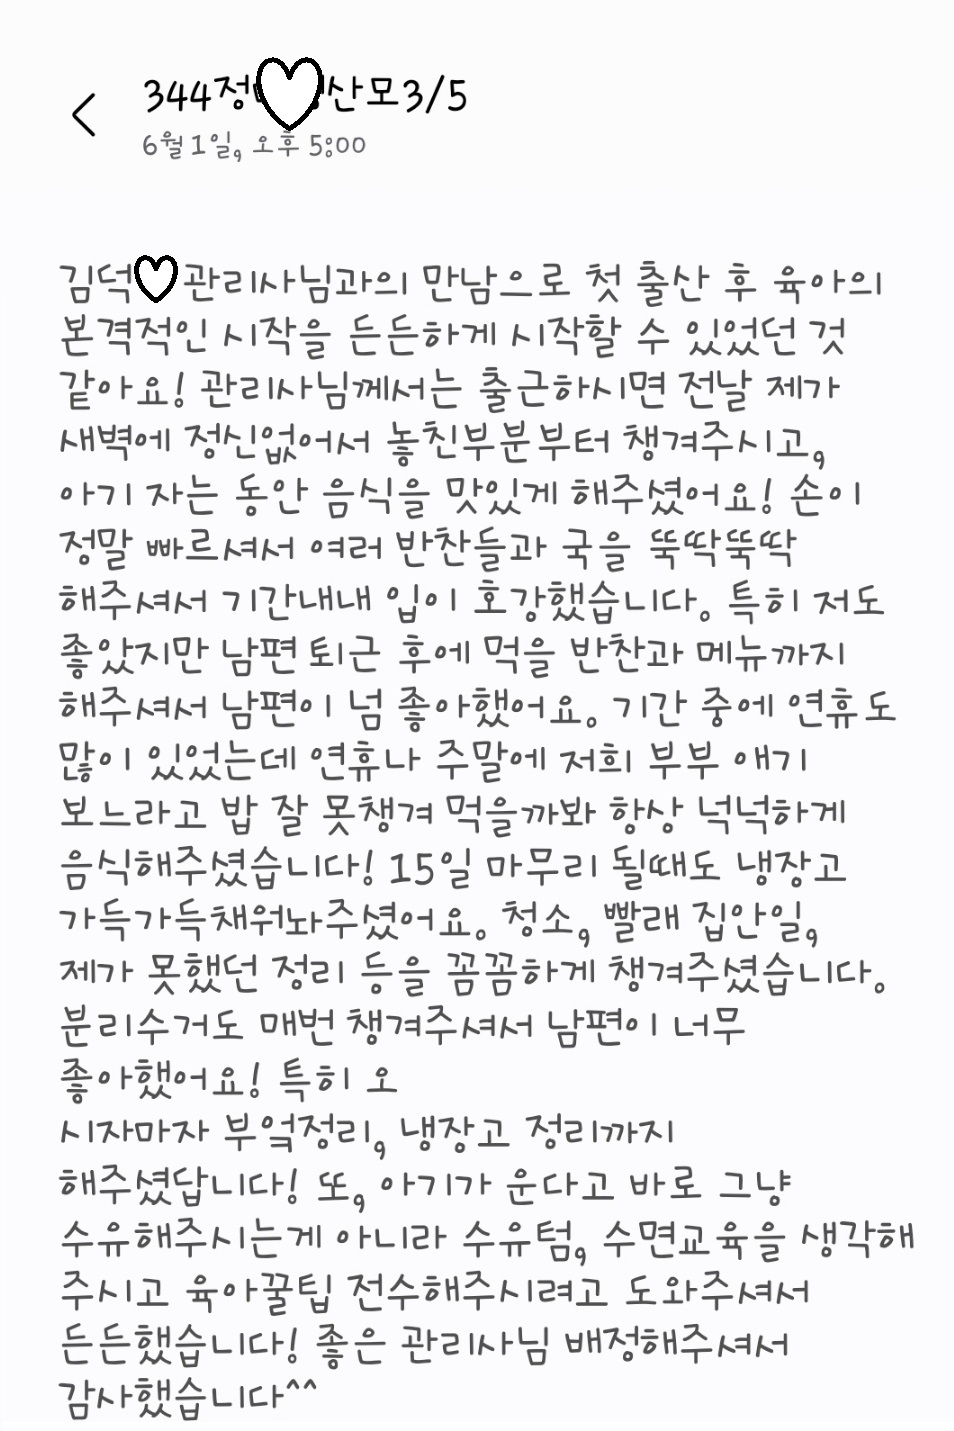 344정 산모3/5
6월 1일, 오후 5:00
김덕 관리사님과의 만남으로 첫 출산 후 육아의
본격적인 시작을 든든하게 시작할 수 있었던 것
같아요! 관리사님께서는 출근하시면 전날 제가
새벽에 정신없어서 놓친부분부터 챙겨주시고,
아기 자는 동안 음식을 맛있게 해주셨어요! 손이
정말 빠르셔서 여러 반찬들과 국을 뚝딱뚝딱
해주셔서 기간내내 입이 호강했습니다. 특히 저도
좋았지만 남편 퇴근 후에 먹을 반찬과 메뉴까지
해주셔서 남편이 넘 좋아했어요. 기간 중에 연휴도
많이 있었는데 연휴나 주말에 저희 부부 애기
보느라고 밥 잘 못챙겨 먹을까봐 항상 넉넉하게
음식해주셨습니다! 15일 마무리 될때도 냉장고
가득가득채워놔주셨어요. 청소, 빨래 집안일,
제가 못했던 정리 등을 꼼꼼하게 챙겨주셨습니다.
분리수거도 매번 챙겨주셔서 남편이 너무
좋아했어요! 특히 오
시자마자 부엌정리, 냉장고 정리까지
해주셨답니다! 또, 아기가 운다고 바로 그냥
수유해주시는게 아니라 수유텀, 수면교육을 생각해
주시고 육아꿀팁 전수해주시려고 도와주셔서
든든했습니다! 좋은 관리사님 배정해주셔서
감사했습니다^^